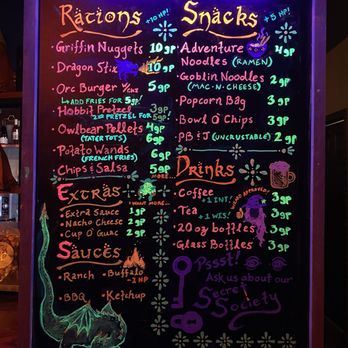 Rations +10 HP!
Griffin Nuggets 10 gp
Dragon Stix 10 gp
Orc Burger w/chz 5 gp
↳ Add fries for 5gp!
Hobbit Pretzel 3 gp
2nd pretzel for 5gp!
Owlbear Pellets 6 gp
(tater tots)
Potato Wands 6 gp
(french fries)
Chips & Salsa 5 gp
Extras
I want more...
Extra Sauce 1 gp
Nacho Cheese 2 gp
Cup O' Guac 2 gp
Sauces
Ranch · Buffalo
-1 HP
BBQ · Ketchup
Snacks +5 HP!
Adventure Noodles (Ramen) 4 gp
Goblin Noodles 2 gp
(mac-n-cheese)
Popcorn Bag 3 gp
Bowl O' Chips 3 gp
PB & J (uncrustable) 2 gp
Drinks
Coffee 3 gp
+1 INT!
Tea 3 gp
+1 WIS!
20 oz bottles 3 gp
Glass Bottles 3 gp
Pssst!
Ask us about our
Secret
Society